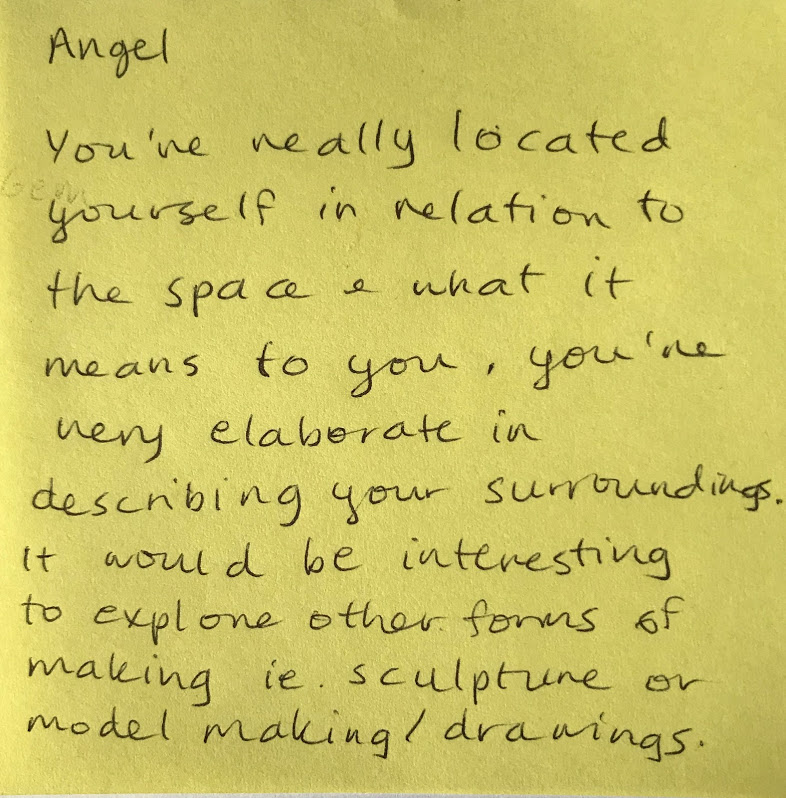 Angel
You're really located
yourself in relation to
the space & what it
means to you, you're
very elaborate in
describing your surroundings.
It would be interesting
to explore other forms of
making ie. sculpture or
model making/drawings.